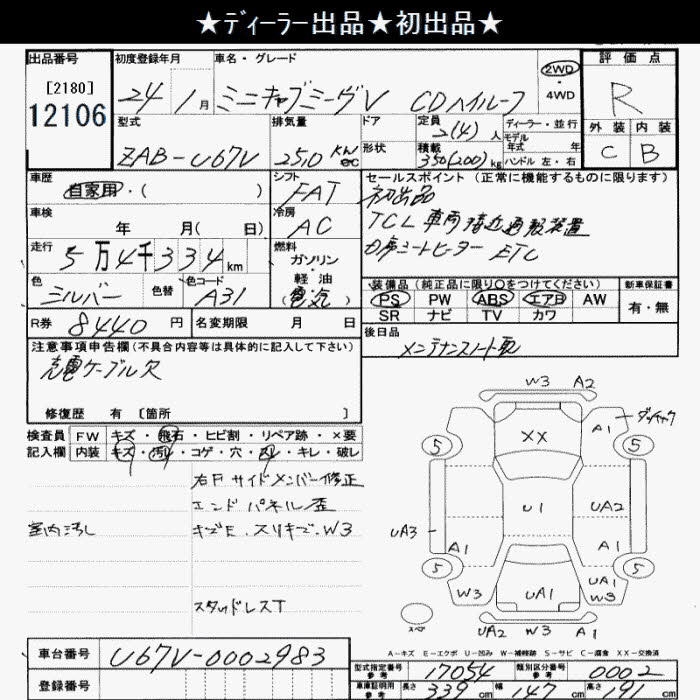 ★ディーラー出品★初出品★
出品番号
[2180]
12106
初度登録年月
24年1月
車名・グレード
ミニキャブミーブV CDハイルーフ
2WD
・
4WD
評価点
R
外装 内装
C B
型式
ZAB-U67V
排気量
2510 KW
cc
ドア
形状
定員
2(4)人
積載
350(200)kg
ディーラー・並行
モデル
年式 年
ハンドル 左・右
車歴
自家用・( )
シフト
FAT
セールスポイント (正常に機能するものに限ります)
初出品
TCL 車両接近通報装置
シートヒーター ETC
車検
年 月( 日)
冷房
AC
走行
5万4千334km
燃料
ガソリン
・
軽油
(電気)
色
シルバー
色替
色コード
A31
装備品(純正品に限り○をつけてください)
PS PW ABS エアB AW
SR ナビ TV カワ
新車保証書
有・無
R券 8440円
名変期限 月 日
後日品
メンテナンスノート
注意事項申告欄(不具合内容等は具体的に記入して下さい)
充電ケーブル欠
修復歴 有 [箇所 ]
検査員
記入欄
FW キズ・飛石・ヒビ割・リペア跡・×要
内装 キズ・汚れ・コゲ・穴・・キレ・破レ
右Fサイドメンバー修正
エンドパネル歪
室内汚し
キズE、スリキズ、W3
スタッドレスT
W3 A2
A1
XX
5 5
U1
UA2
UA3
A1 A1
5 5
W3 UA1 UA1
W3
スペア
UA2 W3 A1
A-キズ E-エクボ U-凹み W-補修跡 S-サビ C-腐食 XX-交換済
車台番号
U67V-0002983
登録番号
型式指定番号
参考
17054
類別区分番号
参考
0002
車庫証明用
参考
長さ 339cm 幅 147cm 高さ 191cm